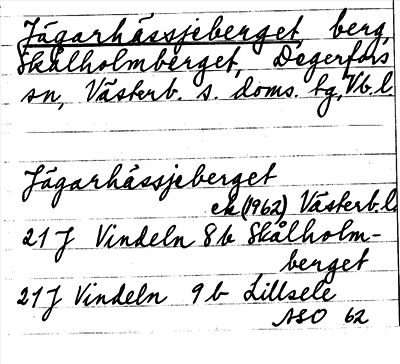 Jägarhässjeberget, berg,
Skålholmberget, Degerfors
sn, Västerb. s. doms. tg, Vb. l
Jägarhässjeberget
ek (1962) Västerb. l.
21 J Vindeln 8b Skålholm-
berget
21 J Vindeln 9b Lillsele
ASO 62